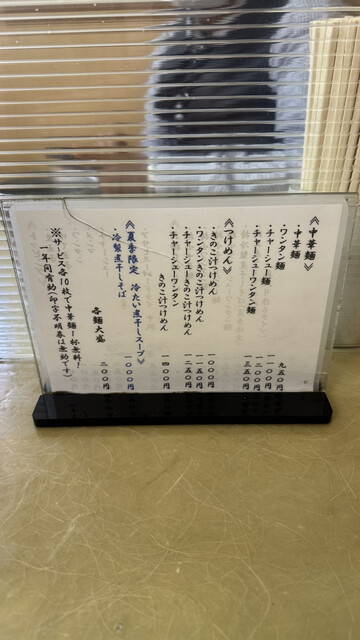 《中華麺》
・中華麺 九五〇円
・ワンタン麺 一一〇〇円
・チャーシュー麺 一二〇〇円
・チャーシューワンタン麺 一三五〇円
《つけめん》
・きのこ汁つけめん 一〇〇〇円
・ワンタンきのこ汁つけめん 一一五〇円
・チャーシューきのこ汁つけめん 一二五〇円
・チャーシューワンタン
きのこ汁つけめん 一四〇〇円
《夏季限定 冷たい煮干しスープ》
・冷製煮干しそば 一〇〇〇円
各麺大盛 二〇〇円
※サービス券10枚で中華麺1杯無料!
一年間有効(印字不明券は無効です)